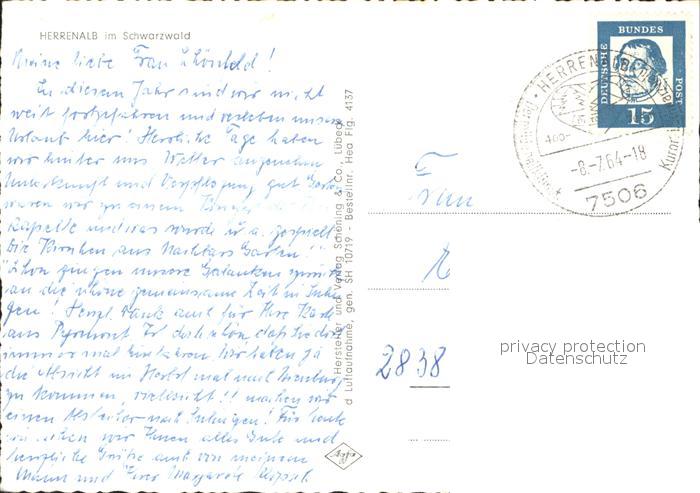 HERRENALB im Schwarzwald
Meine liebe Frau Schönfeld!
In diesem Jahr sind wir nicht
weit fortgefahren und verleben unseren
Urlaub hier! Herrliche Tage haben
wir hinter uns Wetter angenehm
Unterkunft und Verpflegung gut Gestern
waren wir zu einem
Kapelle und was wurde u. a. gespielt
Die Kirschen aus Nachbars Garten!
Schon gingen unsere Gedanken zurück
an die schöne gemeinsame Zeit in
gen! Herzl. Dank auch für Ihre Karte
aus Pyrmont Es ist doch schön, daß Sie dort
immer mal einkehren. Wir haben ja
die Absicht im Herbst mal nach Nienburg
zu kommen, vielleicht!! machen wir
einen Abstecher nach Für heute
wünschen wir Ihnen alles Gute und
herzliche Grüße auch von meinem
Mann und Ihrer Margarete
Hersteller und Verlag Schöning & Co., Lübeck
d Luftaufnahme, gen. SH 10719 - Bestellnr. Hea Fig. 4137
Agfa
DEUTSCHE BUNDES POST
15
HERRENALB
400-
-8.-7.64-18
Kurort
7506
Frau
2838
privacy protection
Datenschutz